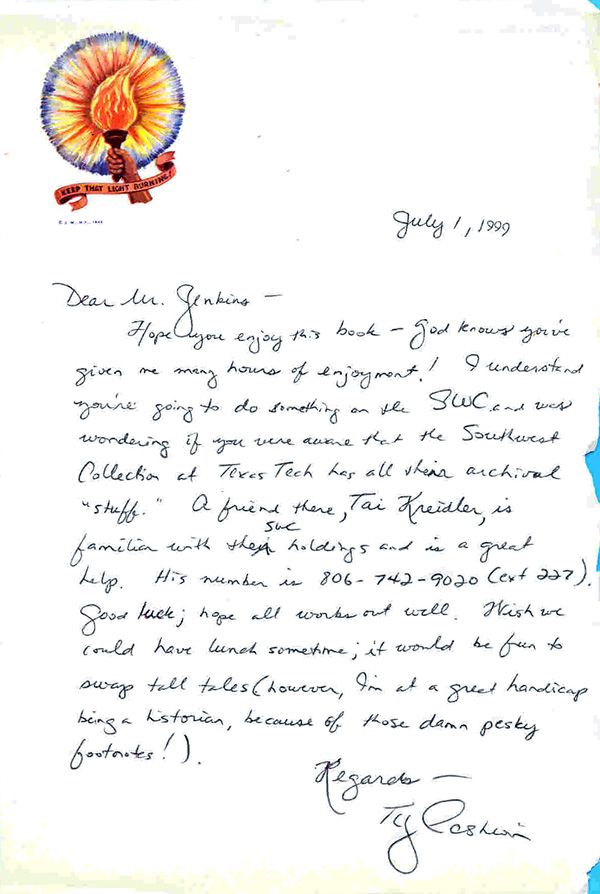 KEEP THAT LIGHT BURNING!
July 1, 1999
Dear Mr. Jenkins —
Hope you enjoy this book — God knows you've
given me many hours of enjoyment! I understand
you're going to do something on the SWC and was
wondering if you were aware that the Southwest
Collection at Texas Tech has all their archival
"stuff." A friend there, Tai Kreidler, is
SWC
familiar with their holdings and is a great
help. His number is 806-742-9020 (ext 227).
Good luck; hope all works out well. Wish we
could have lunch sometime; it would be fun to
swap tall tales (however, I'm at a great handicap
being a historian, because of those damn pesky
footnotes!).
Regards —
Ty Cashion